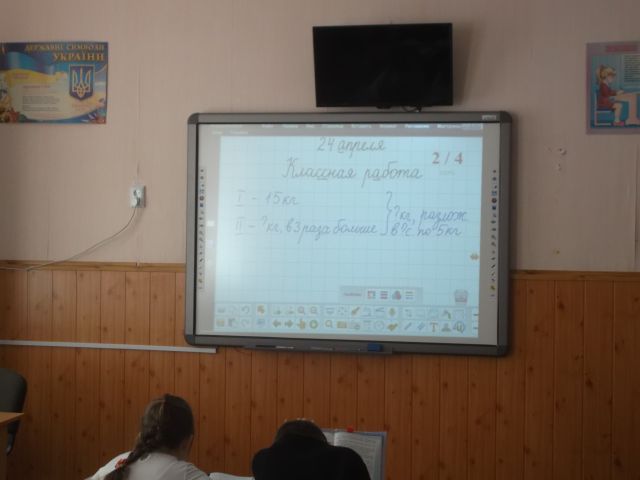 ДЕРЖАВНІ СИМВОЛИ
УКРАЇНИ
24 апреля
2 / 4
Классная работа
I - 15 кг
II - ? кг, в 3 раза больше
? кг, разлож.
в ? с. по 5 кг